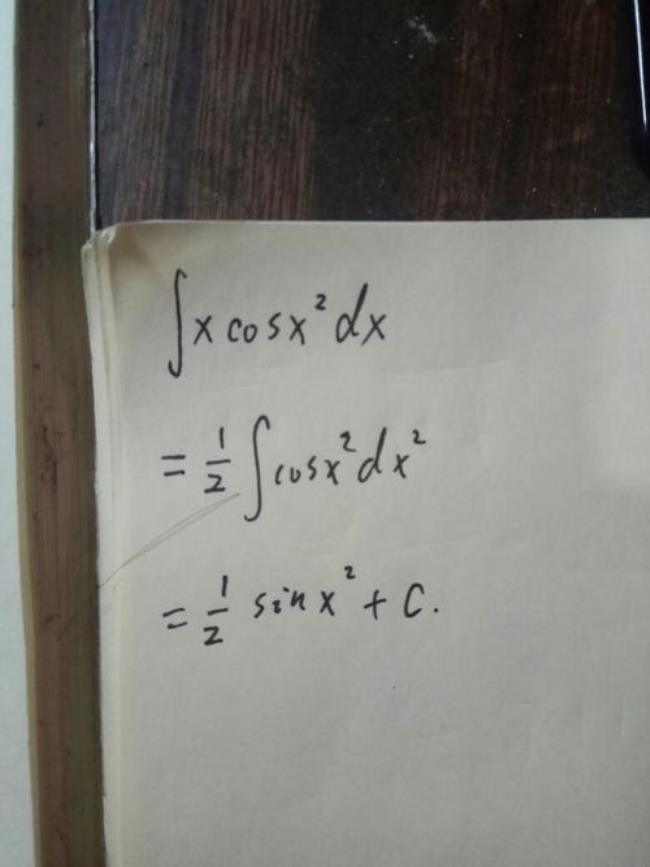 ∫x cosx²dx
= 1/2 ∫cosx²dx²
= 1/2 sinx² + C.